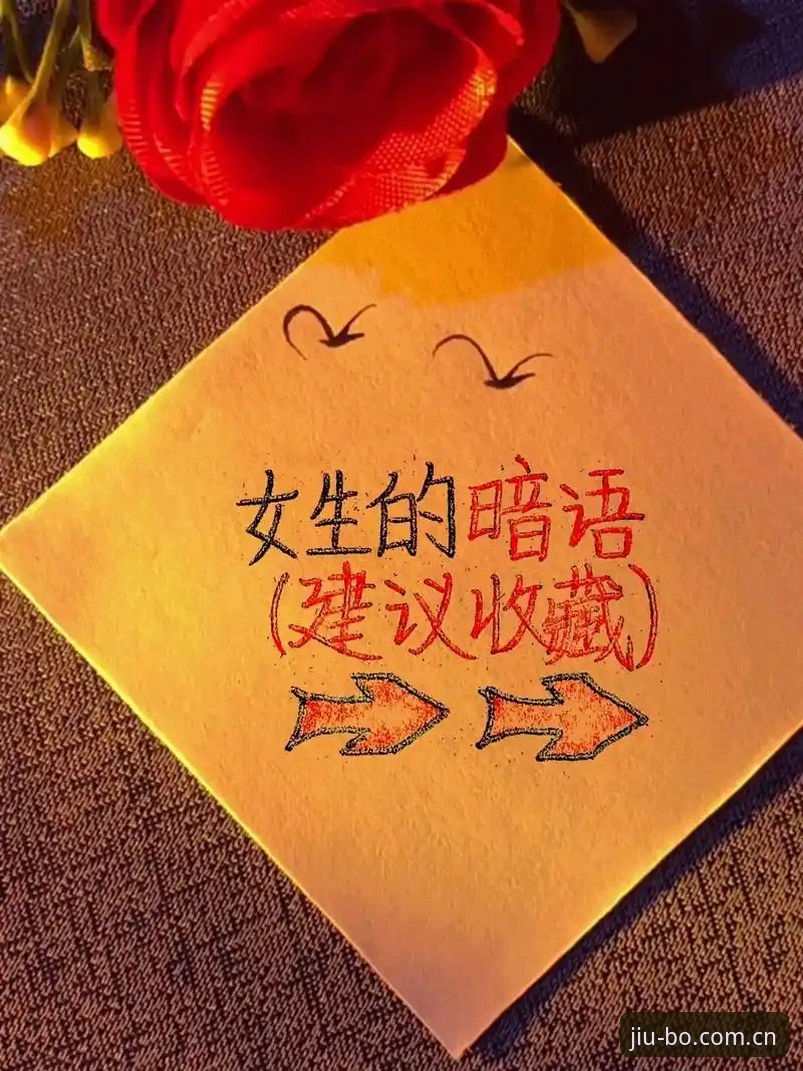 女生的暗语
(建议收藏)
jiu-bo.com.cn